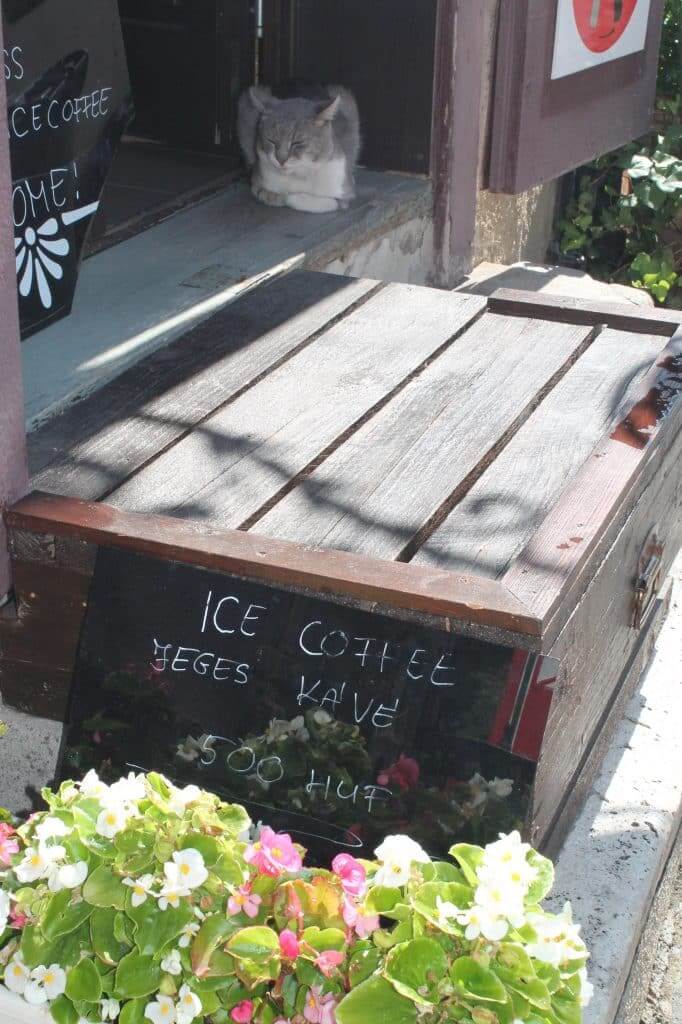 SS
ICE COFFEE
OME!
ICE COFFEE
JEGES KÁVÉ
500 HUF